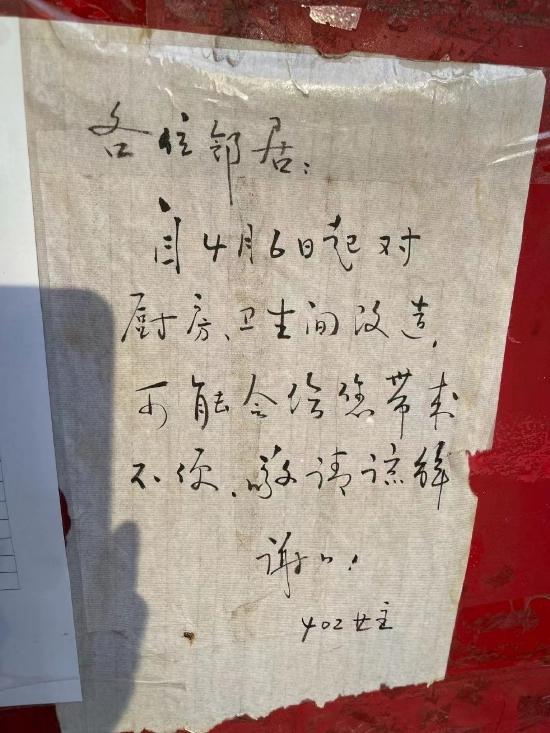 各位邻居:
自4月6日起对
厨房、卫生间改造,
可能会给您带来
不便、敬请谅解
谢谢!
402业主